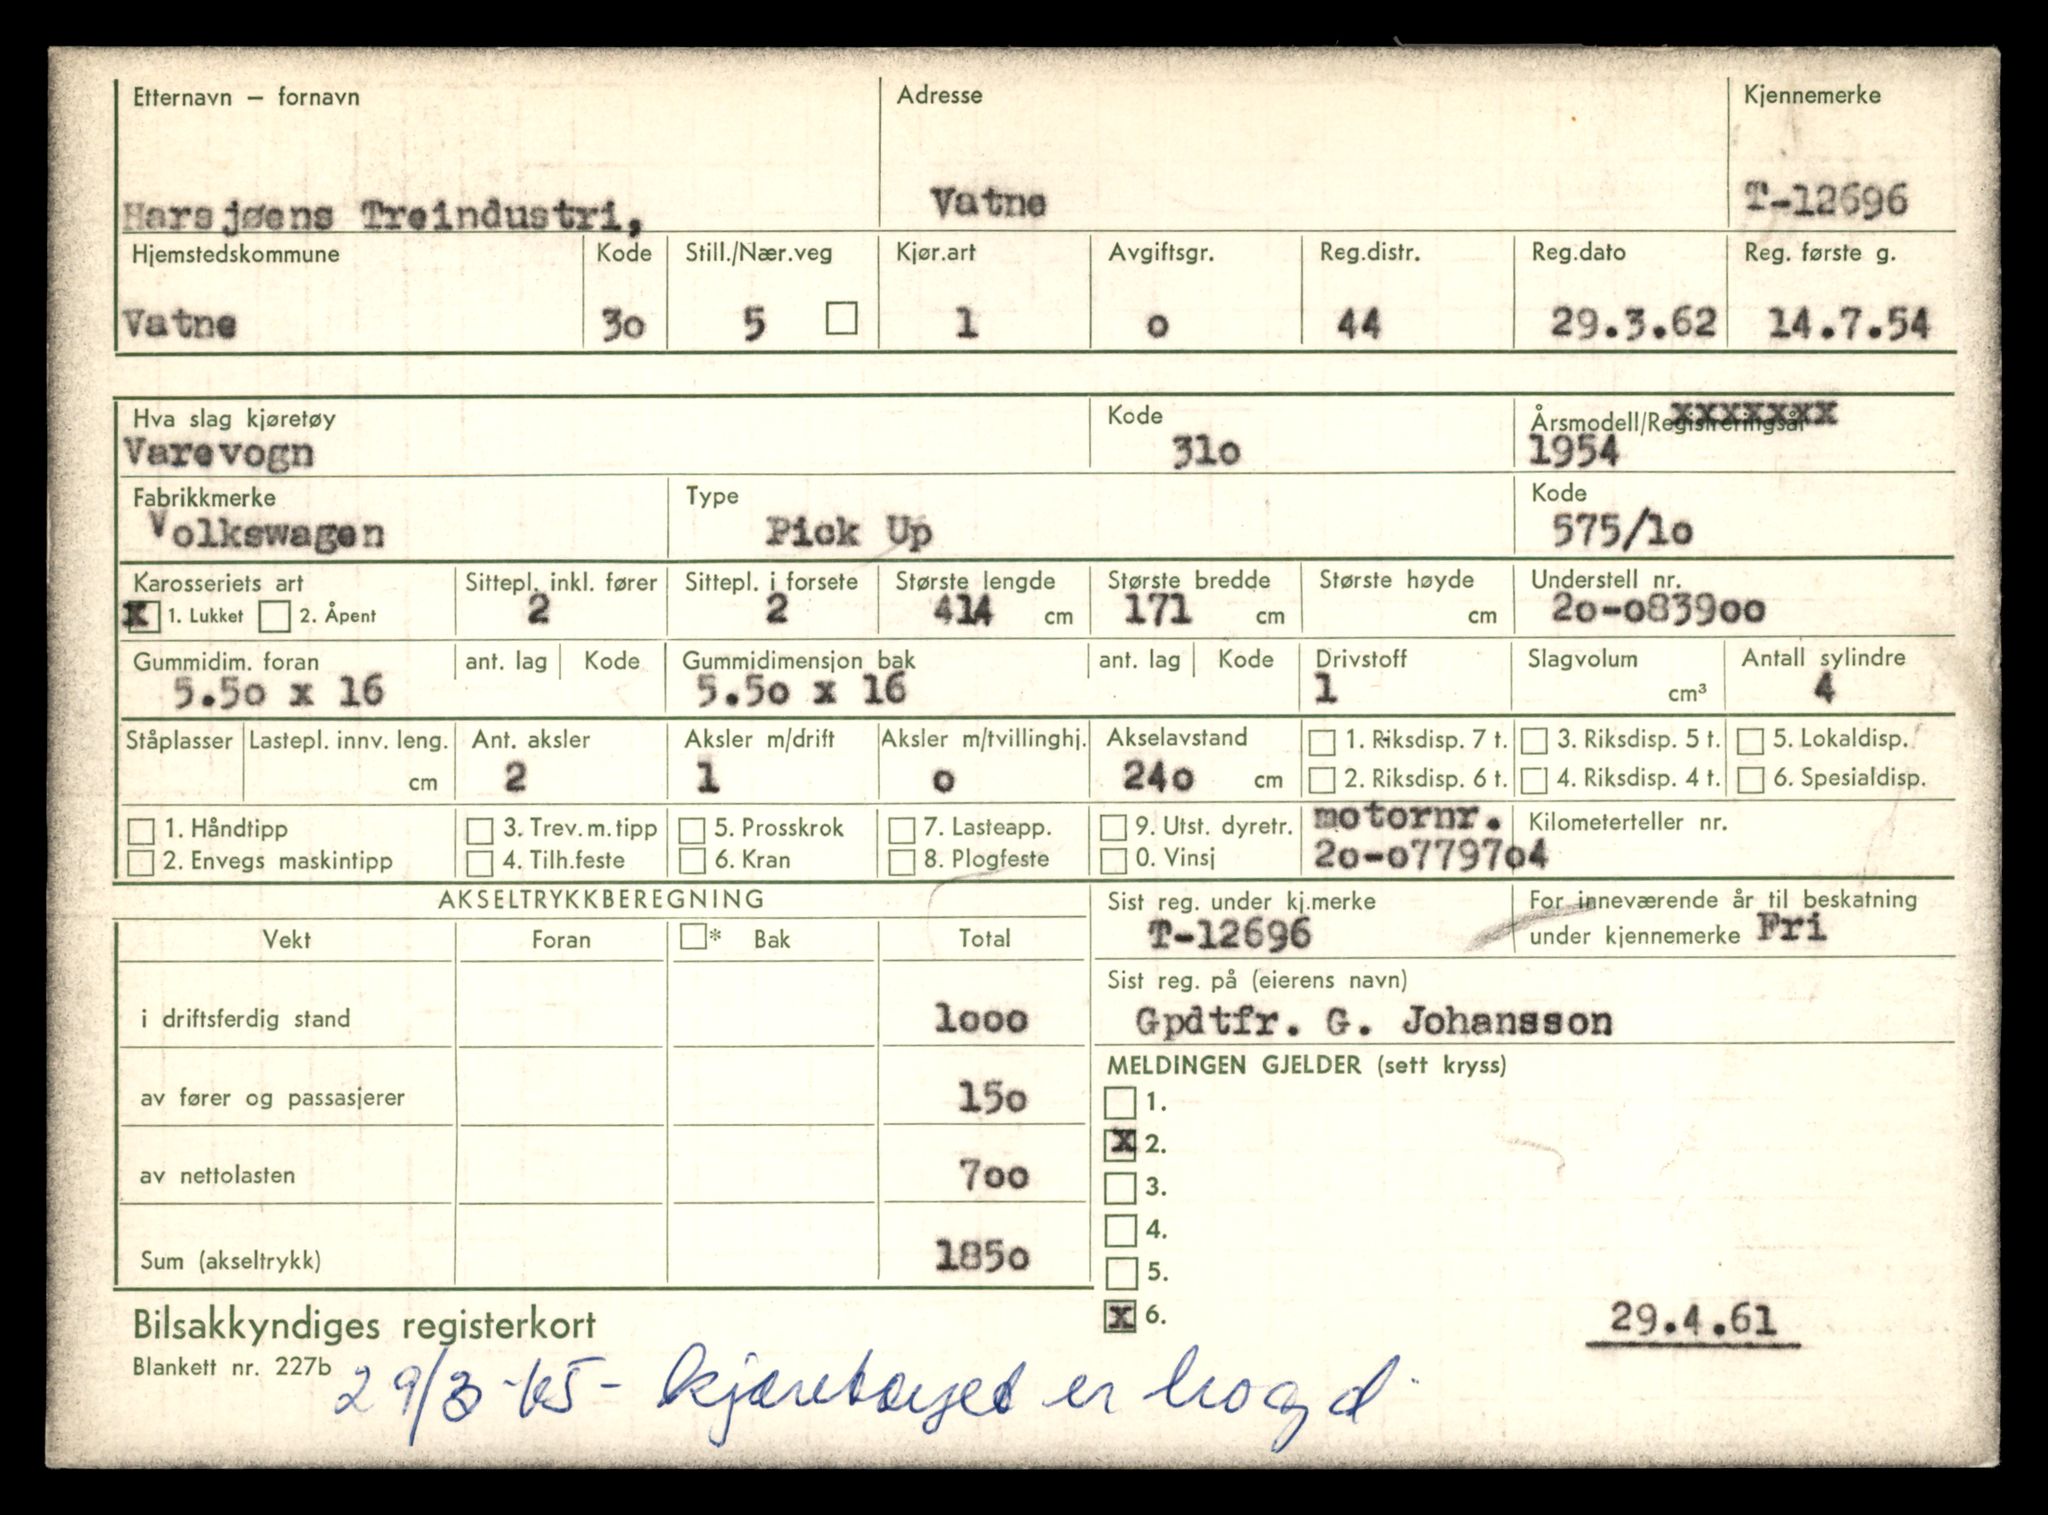 Etternavn – fornavn Adresse Kjennemerke
Harsjøens Treindustri, Vatne T-12696
Hjemstedskommune Kode Still./Nær.veg Kjør.art Avgiftsgr. Reg.distr. Reg.dato Reg. første g.
Vatne 3o 5 1 o 44 29.3.62 14.7.54
Hva slag kjøretøy Kode Årsmodell/Registreringsår xxxxxxx
Varevogn 31o 1954
Fabrikkmerke Type Kode
Volkswagen Pick Up 575/1o
Karosseriets art Sittepl. inkl. fører Sittepl. i forsete Største lengde Største bredde Største høyde Understell nr.
x 1. Lukket 2. Åpent 2 2 414 cm 171 cm cm 2o-o839oo
Gummidim. foran ant. lag Kode Gummidimensjon bak ant. lag Kode Drivstoff Slagvolum Antall sylindre
5.5o x 16 5.5o x 16 1 cm³ 4
Ståplasser Lastepl. innv. leng. Ant. aksler Aksler m/drift Aksler m/tvillinghj. Akselavstand 1. Riksdisp. 7 t. 3. Riksdisp. 5 t. 5. Lokaldisp.
cm 2 1 o 24o cm 2. Riksdisp. 6 t. 4. Riksdisp. 4 t. 6. Spesialdisp.
1. Håndtipp 3. Trev. m. tipp 5. Prosskrok 7. Lasteapp. 9. Utst. dyretr. motornr. Kilometerteller nr.
2. Envegs maskintipp 4. Tilh.feste 6. Kran 8. Plogfeste 0. Vinsj 2o-o7797o4
AKSELTRYKKBEREGNING Sist reg. under kj.merke For inneværende år til beskatning
Vekt Foran * Bak Total T-12696 under kjennemerke Fri
Sist reg. på (eierens navn)
i driftsferdig stand 1ooo Gpdtfr. G. Johansson
MELDINGEN GJELDER (sett kryss)
av fører og passasjerer 15o 1.
x 2.
av nettolasten 7oo 3.
4.
Sum (akseltrykk) 185o 5.
Bilsakkyndiges registerkort x 6. 29.4.61
Blankett nr. 227b
29/3-65- kjøretøyet er hogd